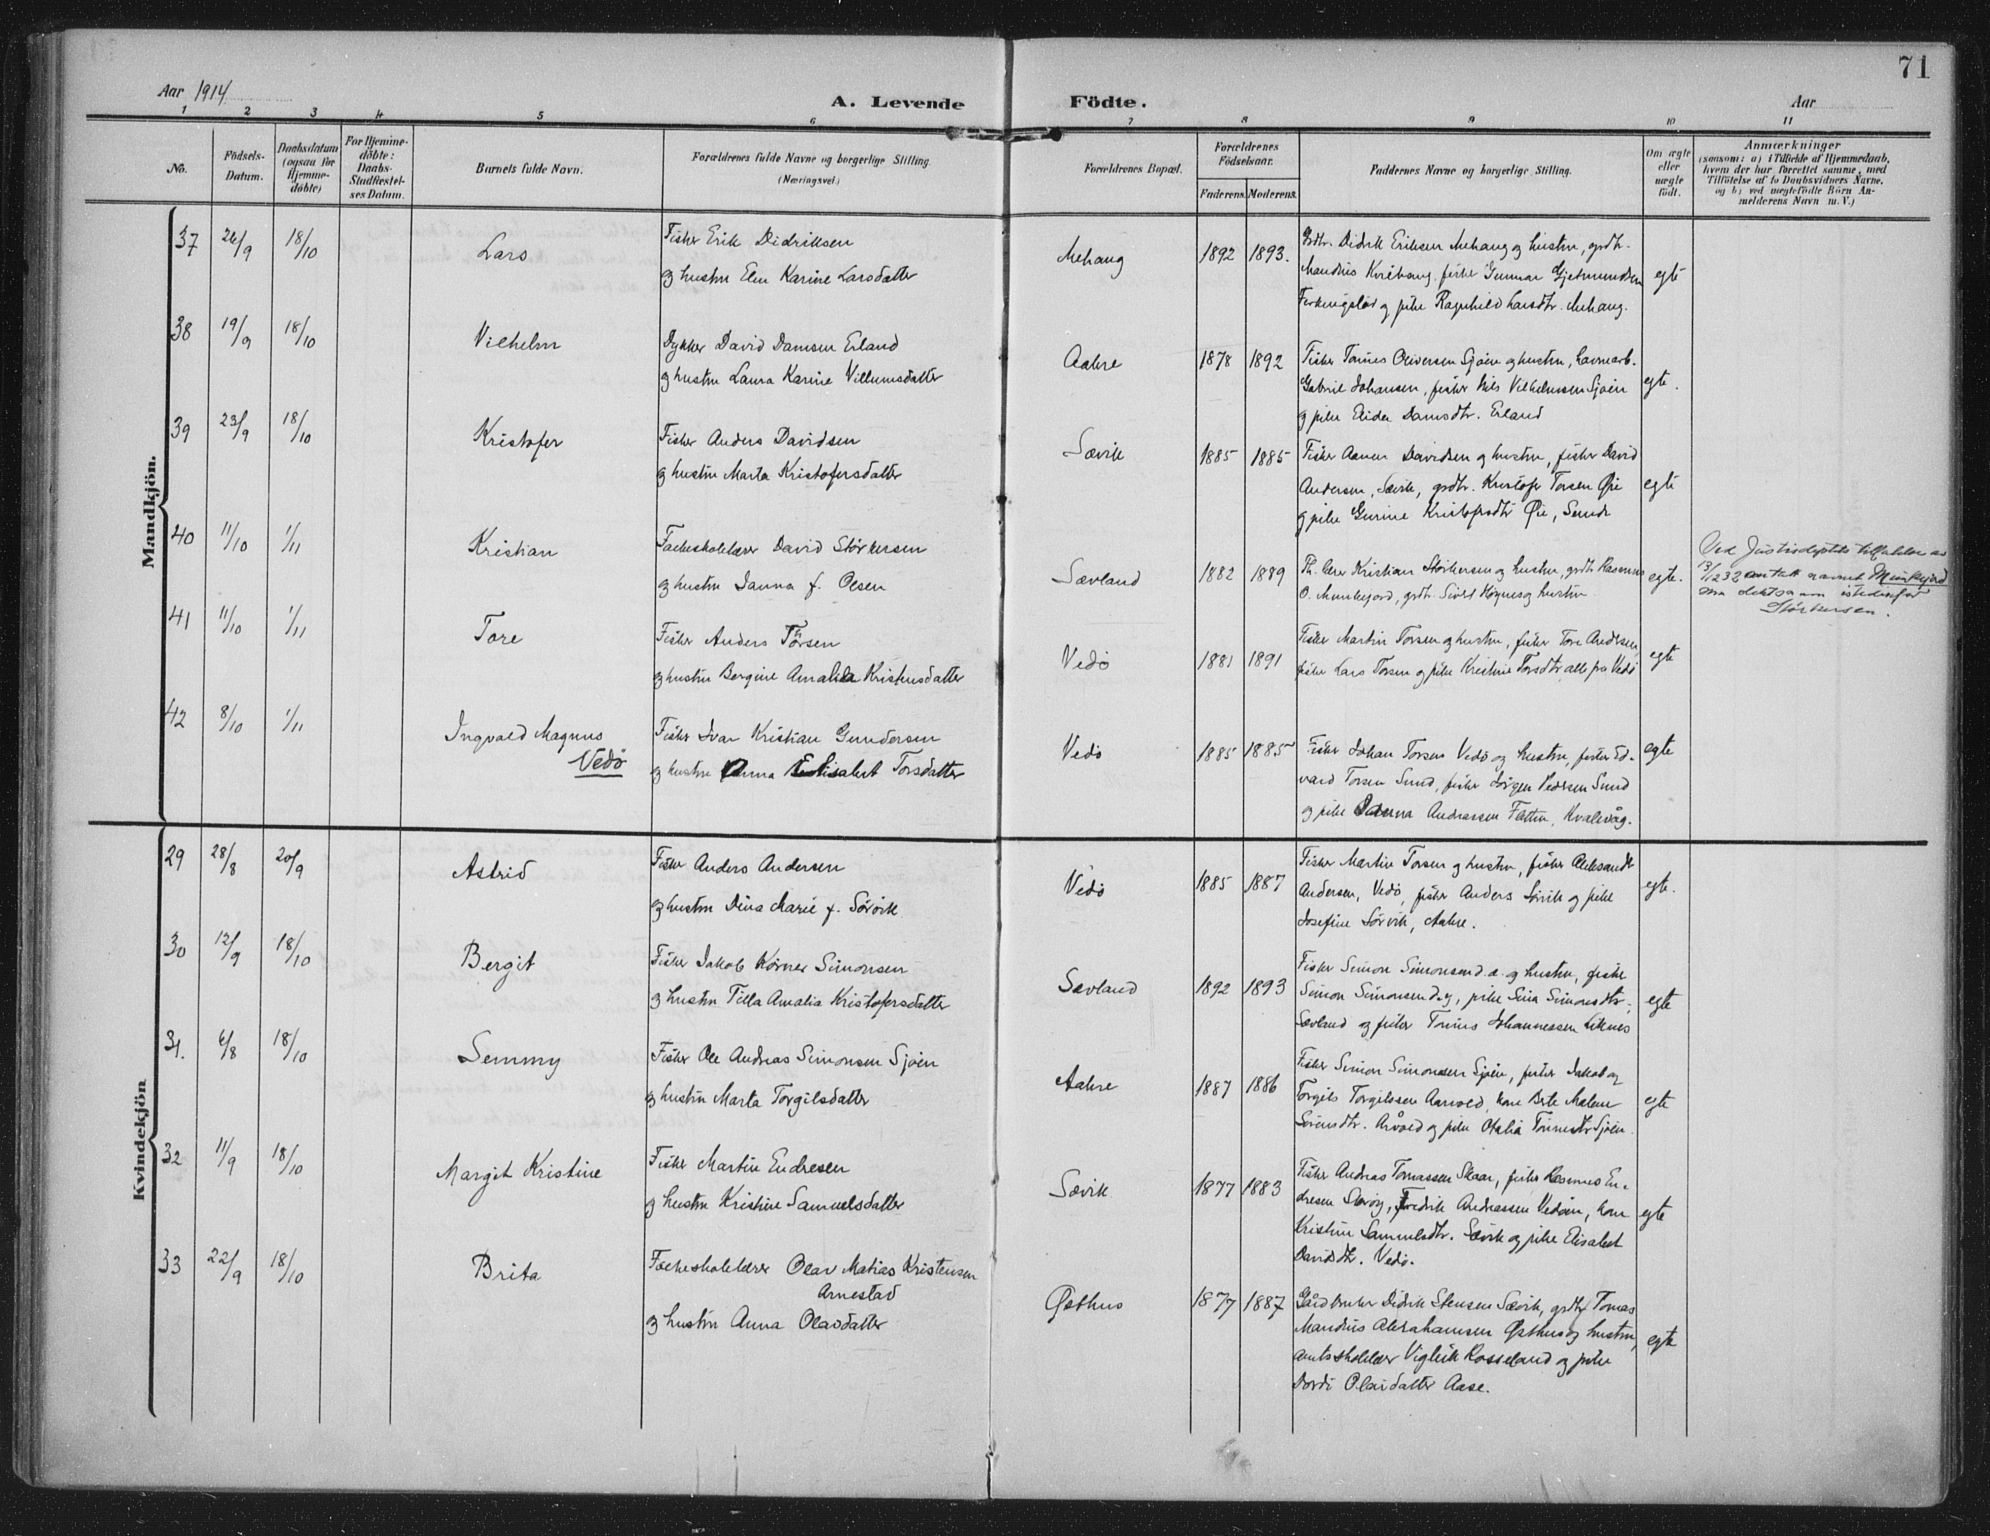 71
Aar 1914
A. Levende Födte.
Aar
1 2 3 4 5 6 7 8 9 10 11
No.
Födsels-
Datum.
Daabsdatum
(ogsaa for
Hjemme-
döbte)
For Hjemme-
döbte:
Daabs-
Stadfæstel-
ses Datum.
Barnets fulde Navn.
Forældrenes fulde Navne og borgerlige Stilling.
(Næringsvei.)
Forældrenes Bopæl.
Forældrenes
Födselsaar.
Faderens. Moderens.
Faddernes Navne og borgerlige Stilling.
Om ægte
eller
uægte
födt.
Anmærkninger
(saasom: a) i Tilfælde af Hjemmedaab,
hvem der har forrettet samme, med
Tilföielse af to Daabsvidners Navne,
og b) ved uegtefödte Börn An-
melderens Navn m. V.)
Mandkjön.
37 26/9 18/10 Lars
Fisker Erik Didriksen
og hustru Elen Karine Larsdatter
Mehaug 1892 1893.
Grdbr. Didrik Eriksen Mehaug og hustru, grdbr.
Mandius Kvilhaug, fisker Gunnar Gjetmundsen
Ferkingstad og pike Ragnhild Larsdtr. Mehaug.
egte
38 19/9 18/10 Vilhelm
Dykker David Damsen Erland
og hustru Laura Karine Villumsdatter
Aakre 1878 1892
Fisker Tønnes Oliversen Sjøen og hustru, havnearb.
Gabriel Johansen, fisker Nils Vilhelmsen Sjøen
og pike Elida Damsdtr. Erland
egte.
39 23/9 18/10 Kristofer
Fisker Anders Davidsen
og hustru Marta Kristofersdatter
Sævik 1885 1885
Fisker Aanen Davidsen og hustru, fisker David
Andersen, Sævik, grdbr. Kristofer Torsen Øie
og pike Gurine Kristofersdtr Øie, Sund
egte
40 11/10 1/11 Kristian
Folkeskolelærer David Størkersen
og hustru Janna f. Olsen
Sævland 1882 1889
Th. lærer Kristian Størkersen og hustru, grdbr Rasmus
O. Munkejord, grdbr. Sivert Høynes og hustru
egte.
Ved Justisdeptets tilladelse av
13/12 32 antatt navnet Munkejord
som slektsnavn istedenfor
Størkersen.
41 11/10 1/11 Tore
Fisker Anders Torsen
og hustru Bergine Amalia Kristensdatter
Vedø 1881 1891
Fisker Martin Torsen og hustru, fisker Tore Andersen,
fisker Lars Torsen og pike Kristine Torsdtr, alle fra Vedø
egte
42 8/10 1/11 Ingvald Magnus
Vedø
Fisker Ivar Kristian Gundersen
og hustru Anna Elisabet Torsdatter
Vedø 1885 1885
Fisker Johan Torsen Vedø og hustru, fisker Ed-
vard Torsen Sund, fisker Jørgen Pedersen Sund
og pike Danna Andreassen Fløtten, Kvalevåg.
egte
Kvindekjön
29 28/8 20/9 Astrid
Fisker Anders Andersen
og hustru Dina Marie f. Sørvik
Vedø 1885 1887
Fisker Martin Torsen og hustru, fisker Aleksander
Andersen, Vedø, fisker Anders Sørvik og pike
Josefine Sørvik, Aakre.
egte.
30 12/9 18/10 Bergit
Fisker Jakob Kørner Simonsen
og hustru Tilla Amalia Kristofersdatter
Sævland 1892 1893
Fisker Simon Simonsen d. æ. og hustru, fisker
Simon Simonsen d. y, pike Sina Simonsdtr,
Sævland og fisker Tønnes Johannessen Liknes
egte
31. 6/8 18/10 Semmy
Fisker Ole Andreas Simonsen Sjøen
og hustru Marta Torgilsdatter
Aakre 1887 1886
Fisker Simon Simonsen Sjøen, fisker Jakob og
Torgils Torgilssen Aarvold, kone Berte Malene
Sørensdtr. Årvold og pike Otalia Tønnesdtr Sjøen.
egte
32 11/9 18/10 Margit Kristine
Fisker Martin Endresen
og hustru Kristine Samuelsdatter
Sævik 1877 1883
Fisker Andreas Tomassen Skaar, fisker Rasmus En-
dresen Størøy, Fredrik Andreassen Vedøen, kone
Kristine Samuelsdtr. Sævik og pike Elisabet
Davidsdtr. Vedø.
egte
33 22/9 18/10 Brita
Folkeskolelærer Olav Matias Kristensen
Arnestad
og hustru Anna Olavdatter
Østhus 1877 1887
Gårdbruker Didrik Stensen Sævik, grdbr Tomas
Mandius Abrahamsen Østhus og hustru,
amtsskolelær Vigleik Rosseland og pike
Dordi Olavdatter Aase.
egte